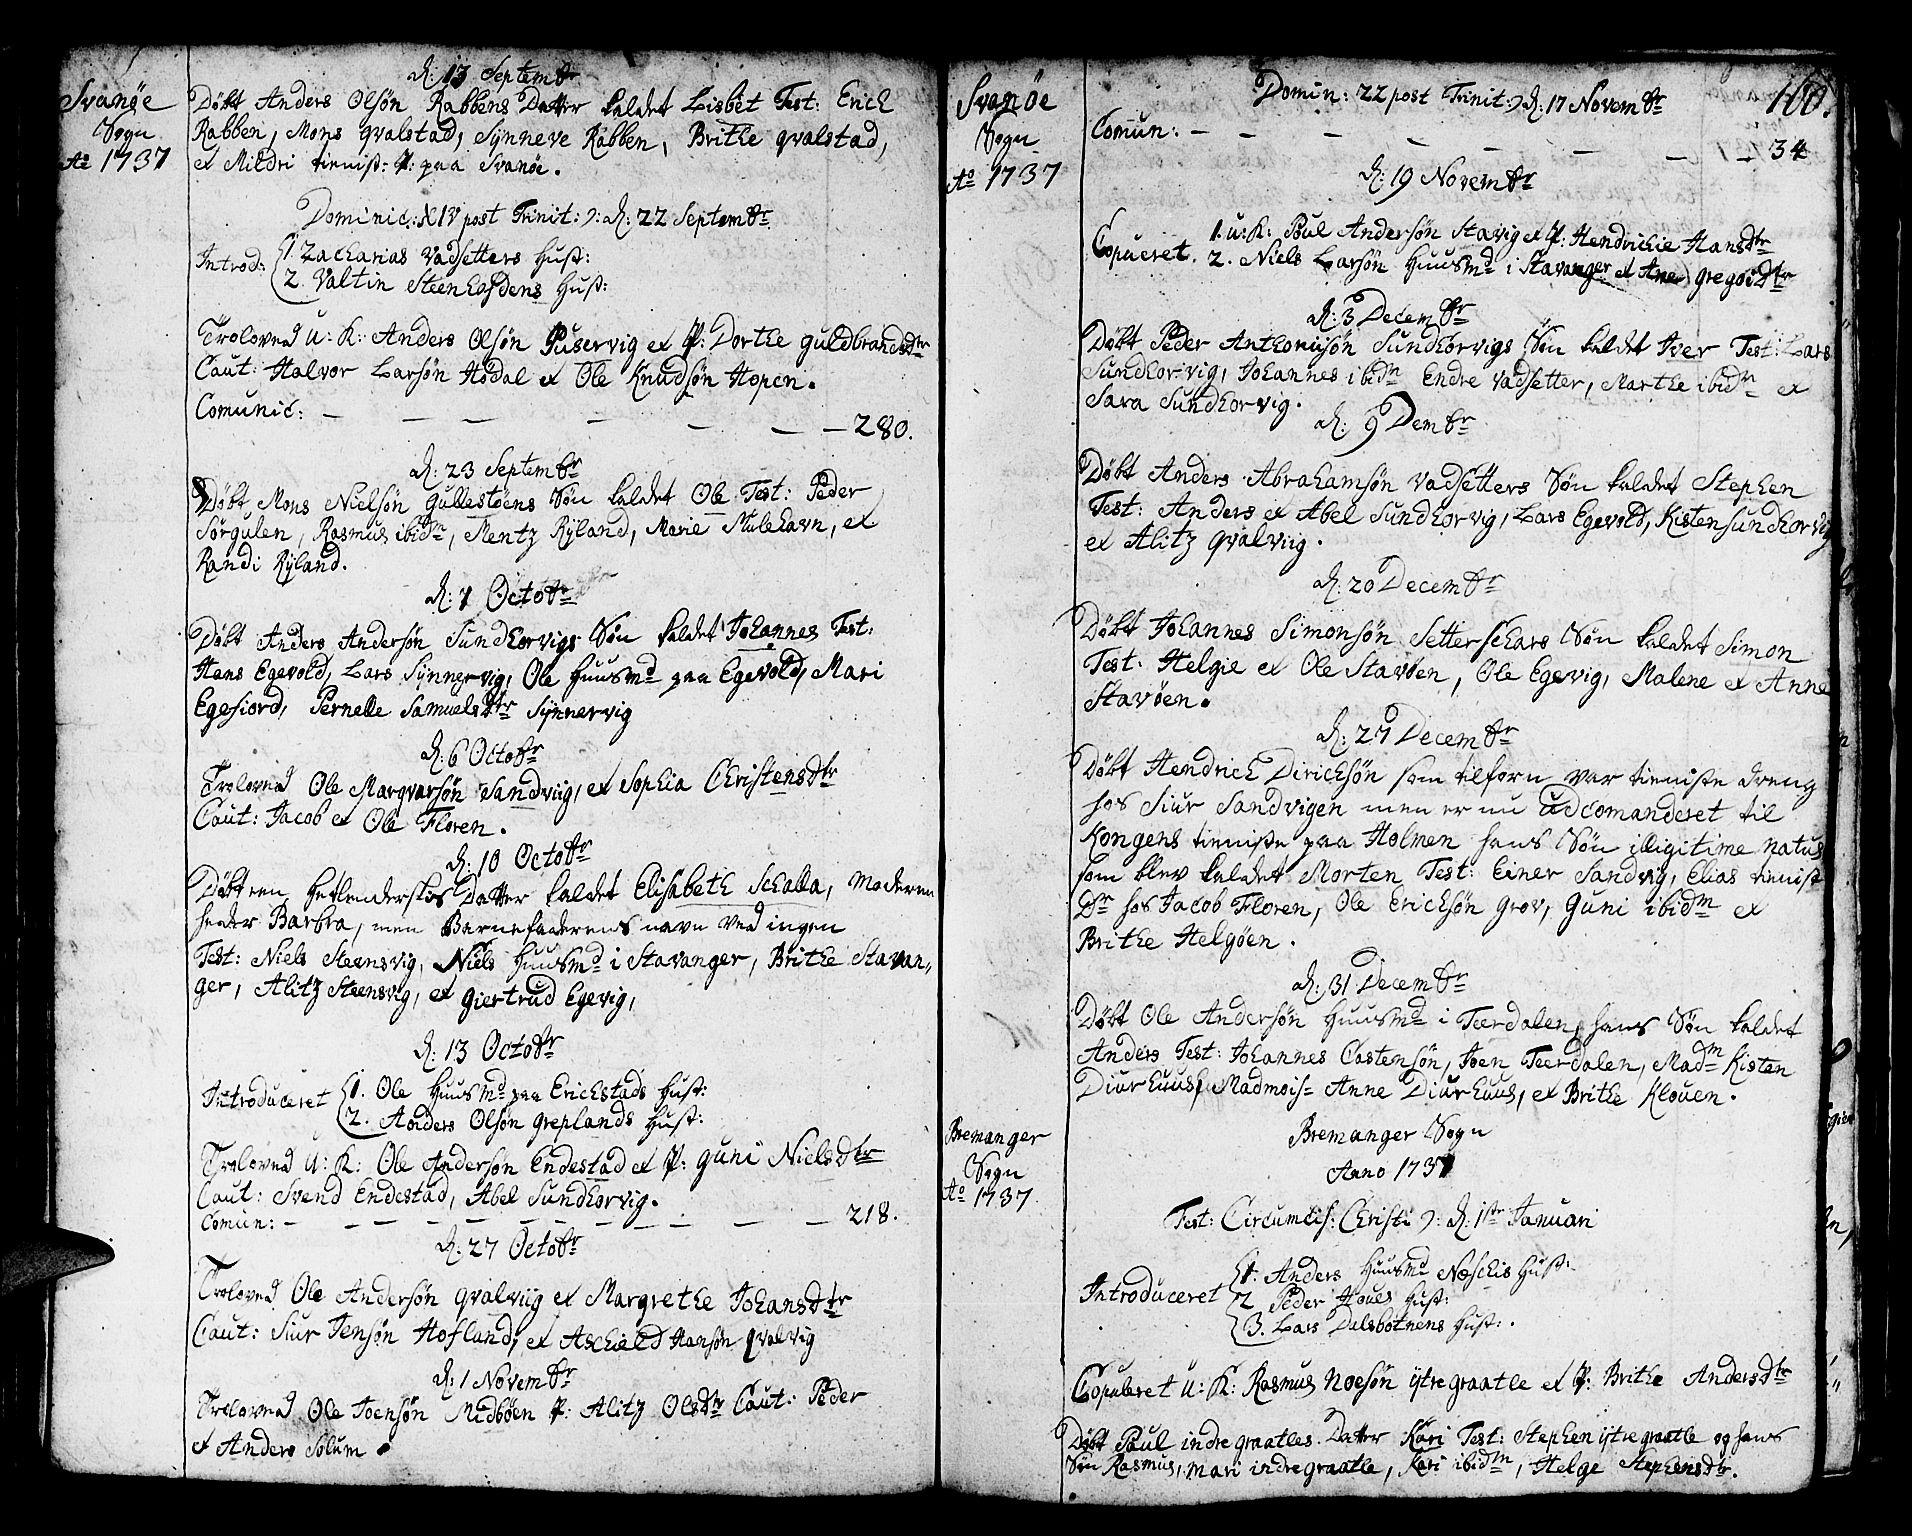 Svanöe
Sogn
Ao 1737
d: 13 Septembr
Döbt Anders Olsön Rabbens Datter kaldet Lisbet Test: Erich
Rabben, Mons qvalstad, Synneve Rabben, Brithe qvalstad,
et Mildri tieniste p: paa Svanöe.
Dominic: XIV post Trinit: ɔ: d: 22 Septembr
Introd: 1. Zacharias Vadsetters Hust:
2. Valtin Steenhofdens Hust:
Troloved u: K: Anders Olsön Puservig et p: Dorthe guldbrandsdtr
Caut: Halvor Larsön Hodal et Ole Knudsön Hopen.
Comunic: — — — — — — — 280.
d: 23 Septembr
Döbt Mons Nielsön gullestöens Sön kaldet Ole Test: Peder
Sörgulen, Rasmus ibidm, Mentz Ryland, Marie Mulehavn, et
Randi Ryland.
d: 1 Octobr
Döbt Anders Andersön Sundhorvigs Sön kaldet Johannes Test:
Hans Egevold, Lars Synnervig, Ole Huusmd paa Egevold, Mari
Egefiord, Pernelle Samuelsdtr Synnervig
d: 6 Octobr
Troloved Ole Margvarsön Sandviig, et Sophia Christensdtr
Caut: Jacob et Ole Floren.
d: 10 Octobr
Döbt en Hetlenderskes Datter kaldet Elisabeth Schalla, Moderen
heder Barbra, men Barnefaderens navn ved ingen
Test: Niels Steensvig, Niels Huusmd i Stavanger, Brithe Stavan,,
ger, Alitz Steensvig, et giertrud Egevig,
d: 13 Octobr
Introduceret 1. Ole Huusmd paa Erichstads Hust:
2. Anders Olsön greplands Hust:
Troloved u: K: Ole Andersön Endestad et p: guni Nielsdtr
Caut: Svend Endestad, Abel Sundhorvig.
Comun: — — — — — — — — — — 218.
d: 27 Octobr
Troloved Ole Andersön qvalviig et Margrethe Johansdtr
Caut: Siur Jensön Hofland, et Axchield Hansön qvalvig
d: 1 Novembr
Troloved Ole Joensön Midböen p: Alitz Olsdtr Caut: Peder
et Anders Solum.
Svanöe
Sogn
Ao 1737
160.
Domin: 22 post Trinit: ɔ: d: 17 Novembr
Comun: — — — — — — — 34
d: 19 Novembr
Copuleret. 1. u: K: Poul Andersön Stavig et p: Hendrichie Hansdtr
2. Niels Larsön Huusmd i Stavanger et Ane gregoidtr
d: 3 Decembr
Döbt Peder Anthonisön Sundhorvigs Sön kaldet Iver Test: Lars
Sundhorvig, Johannes ibidm Endre Vadsetter, Marthe ibidm et
Sara Sundhorvig.
d: 9 Dembr
Döbt Anders Abrahamsön Vadsetters Sön kaldet Stephen
Test: Anders et Abel Sundhorvig, Lars Egevold, Kisten Sundhorvig
et Alitz qvalviig.
d: 20 Decembr
Döbt Johannes Simonsön Setterschars Sön kaldet Simon
Test: Helgie et Ole Stavöen, Ole Egevig, Malene et Anne
Stavöen.
d: 27 Decembr
Döbt Hendrich Dirichsön som tilforn var tieniste dreng
hos Siur Sandvigen men er nu udcomanderet til
Kongens tieniste paa Holmen hans Sön illigitime natus
som blev kaldet Morten Test: Einer Sandvig, Elias tieniste
Dr hos Jacob Floren, Ole Erichsön grov, Guni ibidm et
Brithe Helgöen.
d: 31 Decembr
Döbt Ole Andersön Huusmd i Teerdalen, hans Sön kaldet
Anders Test: Johannes Castensön, Joen Teerdalen, Madm Kisten
Diurhuus, Madmois= Anne Diurhuus, et Brithe Klouen.
Bremanger
Sogn
Ao 1737.
Bremanger Sogn
Anno 1737
Fest: Circumcis: Christi ɔ: d: 1ste Januari
Introduceret 1. Anders Huusmd Næschis Hust:
2 Peder Houes Hust:
3. Lars Dalsbotnens Hust:.
Copuleret u: K: Rasmus Noesön ytre graatle et p: Brithe Andersdtr
Döbt Paul indre graatles Datter Kari Test: Stephen ytre graatle og hans
Sön Rasmus, Mari indre graatle, Kari ibidm, Helge Stephensdtr.